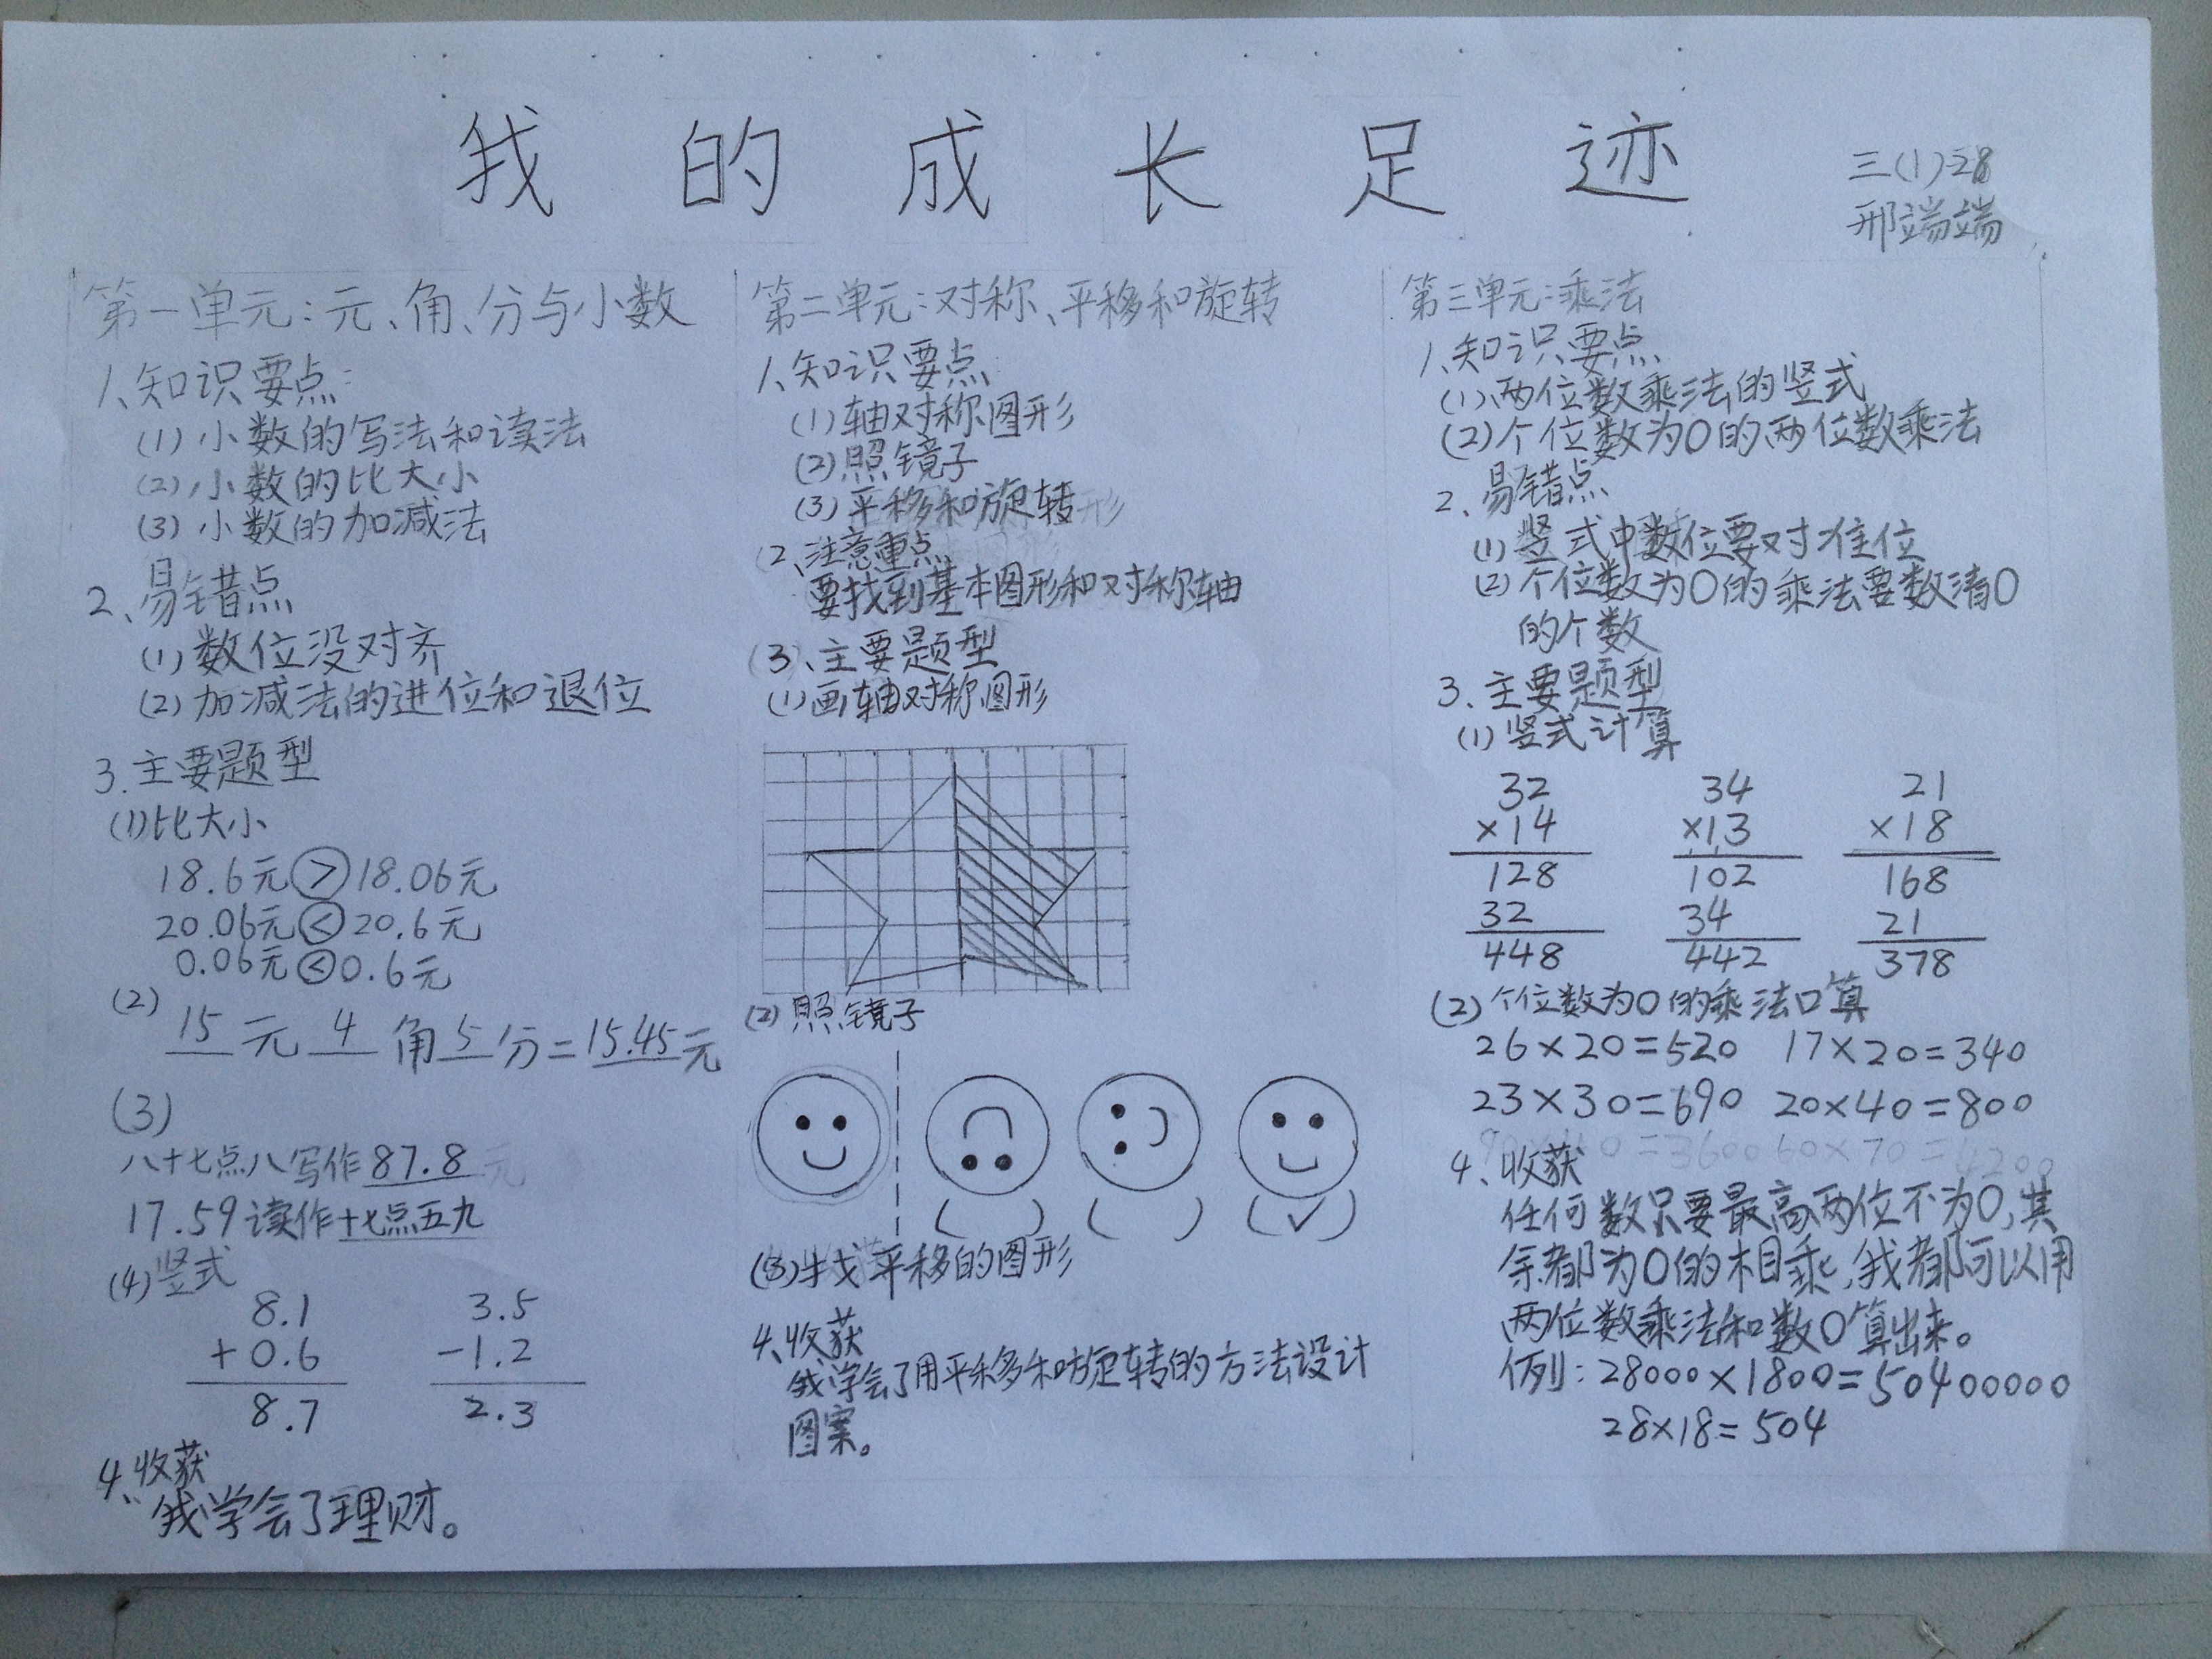 我的成长足迹
三(1)28
邢端端
第一单元:元、角、分与小数
1、知识要点:
(1)小数的写法和读法
(2)小数的比大小
(3)小数的加减法
2、易错点
(1)数位没对齐
(2)加减法的进位和退位
3.主要题型
(1)比大小
18.6元>18.06元
20.06元<20.6元
0.06元<0.6元
(2)
15元4角5分=15.45元
(3)
八十七点八写作87.8元
17.59读作十七点五九
(4)竖式
8.1 3.5
+0.6 -1.2
8.7 2.3
4、收获
我学会了理财。
第二单元:对称、平移和旋转
1、知识要点
(1)轴对称图形
(2)照镜子
(3)平移和旋转形
2、注意重点
要找到基本图形和对称轴
(3、主要题型
(1)画轴对称图形
(2)照镜子
( ) ( ) (✓)
(3)找平移的图形
4、收获
我学会了用平移和旋转的方法设计
图案。
第三单元:乘法
1、知识要点
(1)两位数乘法的竖式
(2)个位数为0的两位数乘法
2、易错点
(1)竖式中数位要对准位
(2)个位数为0的乘法要数清0
的个数
3.主要题型
(1)竖式计算
32 34 21
×14 ×13 ×18
128 102 168
32 34 21
448 442 378
(2)个位数为0的乘法口算
26×20=520 17×20=340
23×30=690 20×40=800
=3600 60×70=4200
4、收获
任何数只要最高两位不为0,其
余都为0的相乘,我都可以用
两位数乘法和数0算出来。
例:28000×1800=50400000
28×18=504